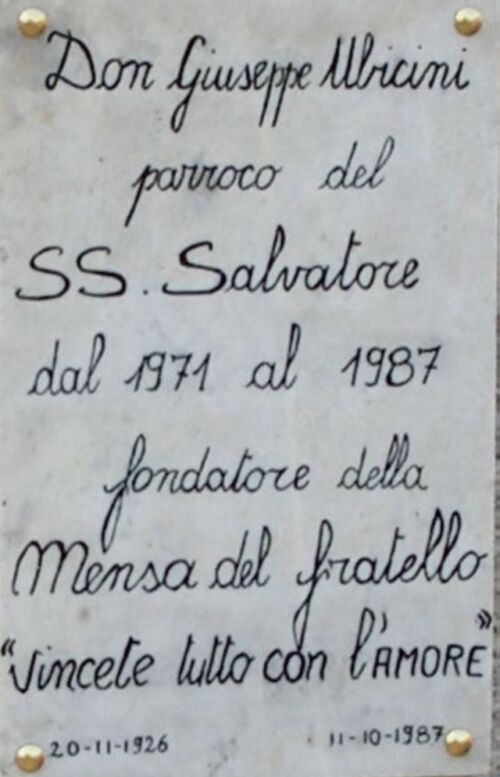 Don Giuseppe Ubicini
parroco del
SS. Salvatore
dal 1971 al 1987
fondatore della
Mensa del fratello
"Vincete tutto con l'AMORE"
20-11-1926 11-10-1987